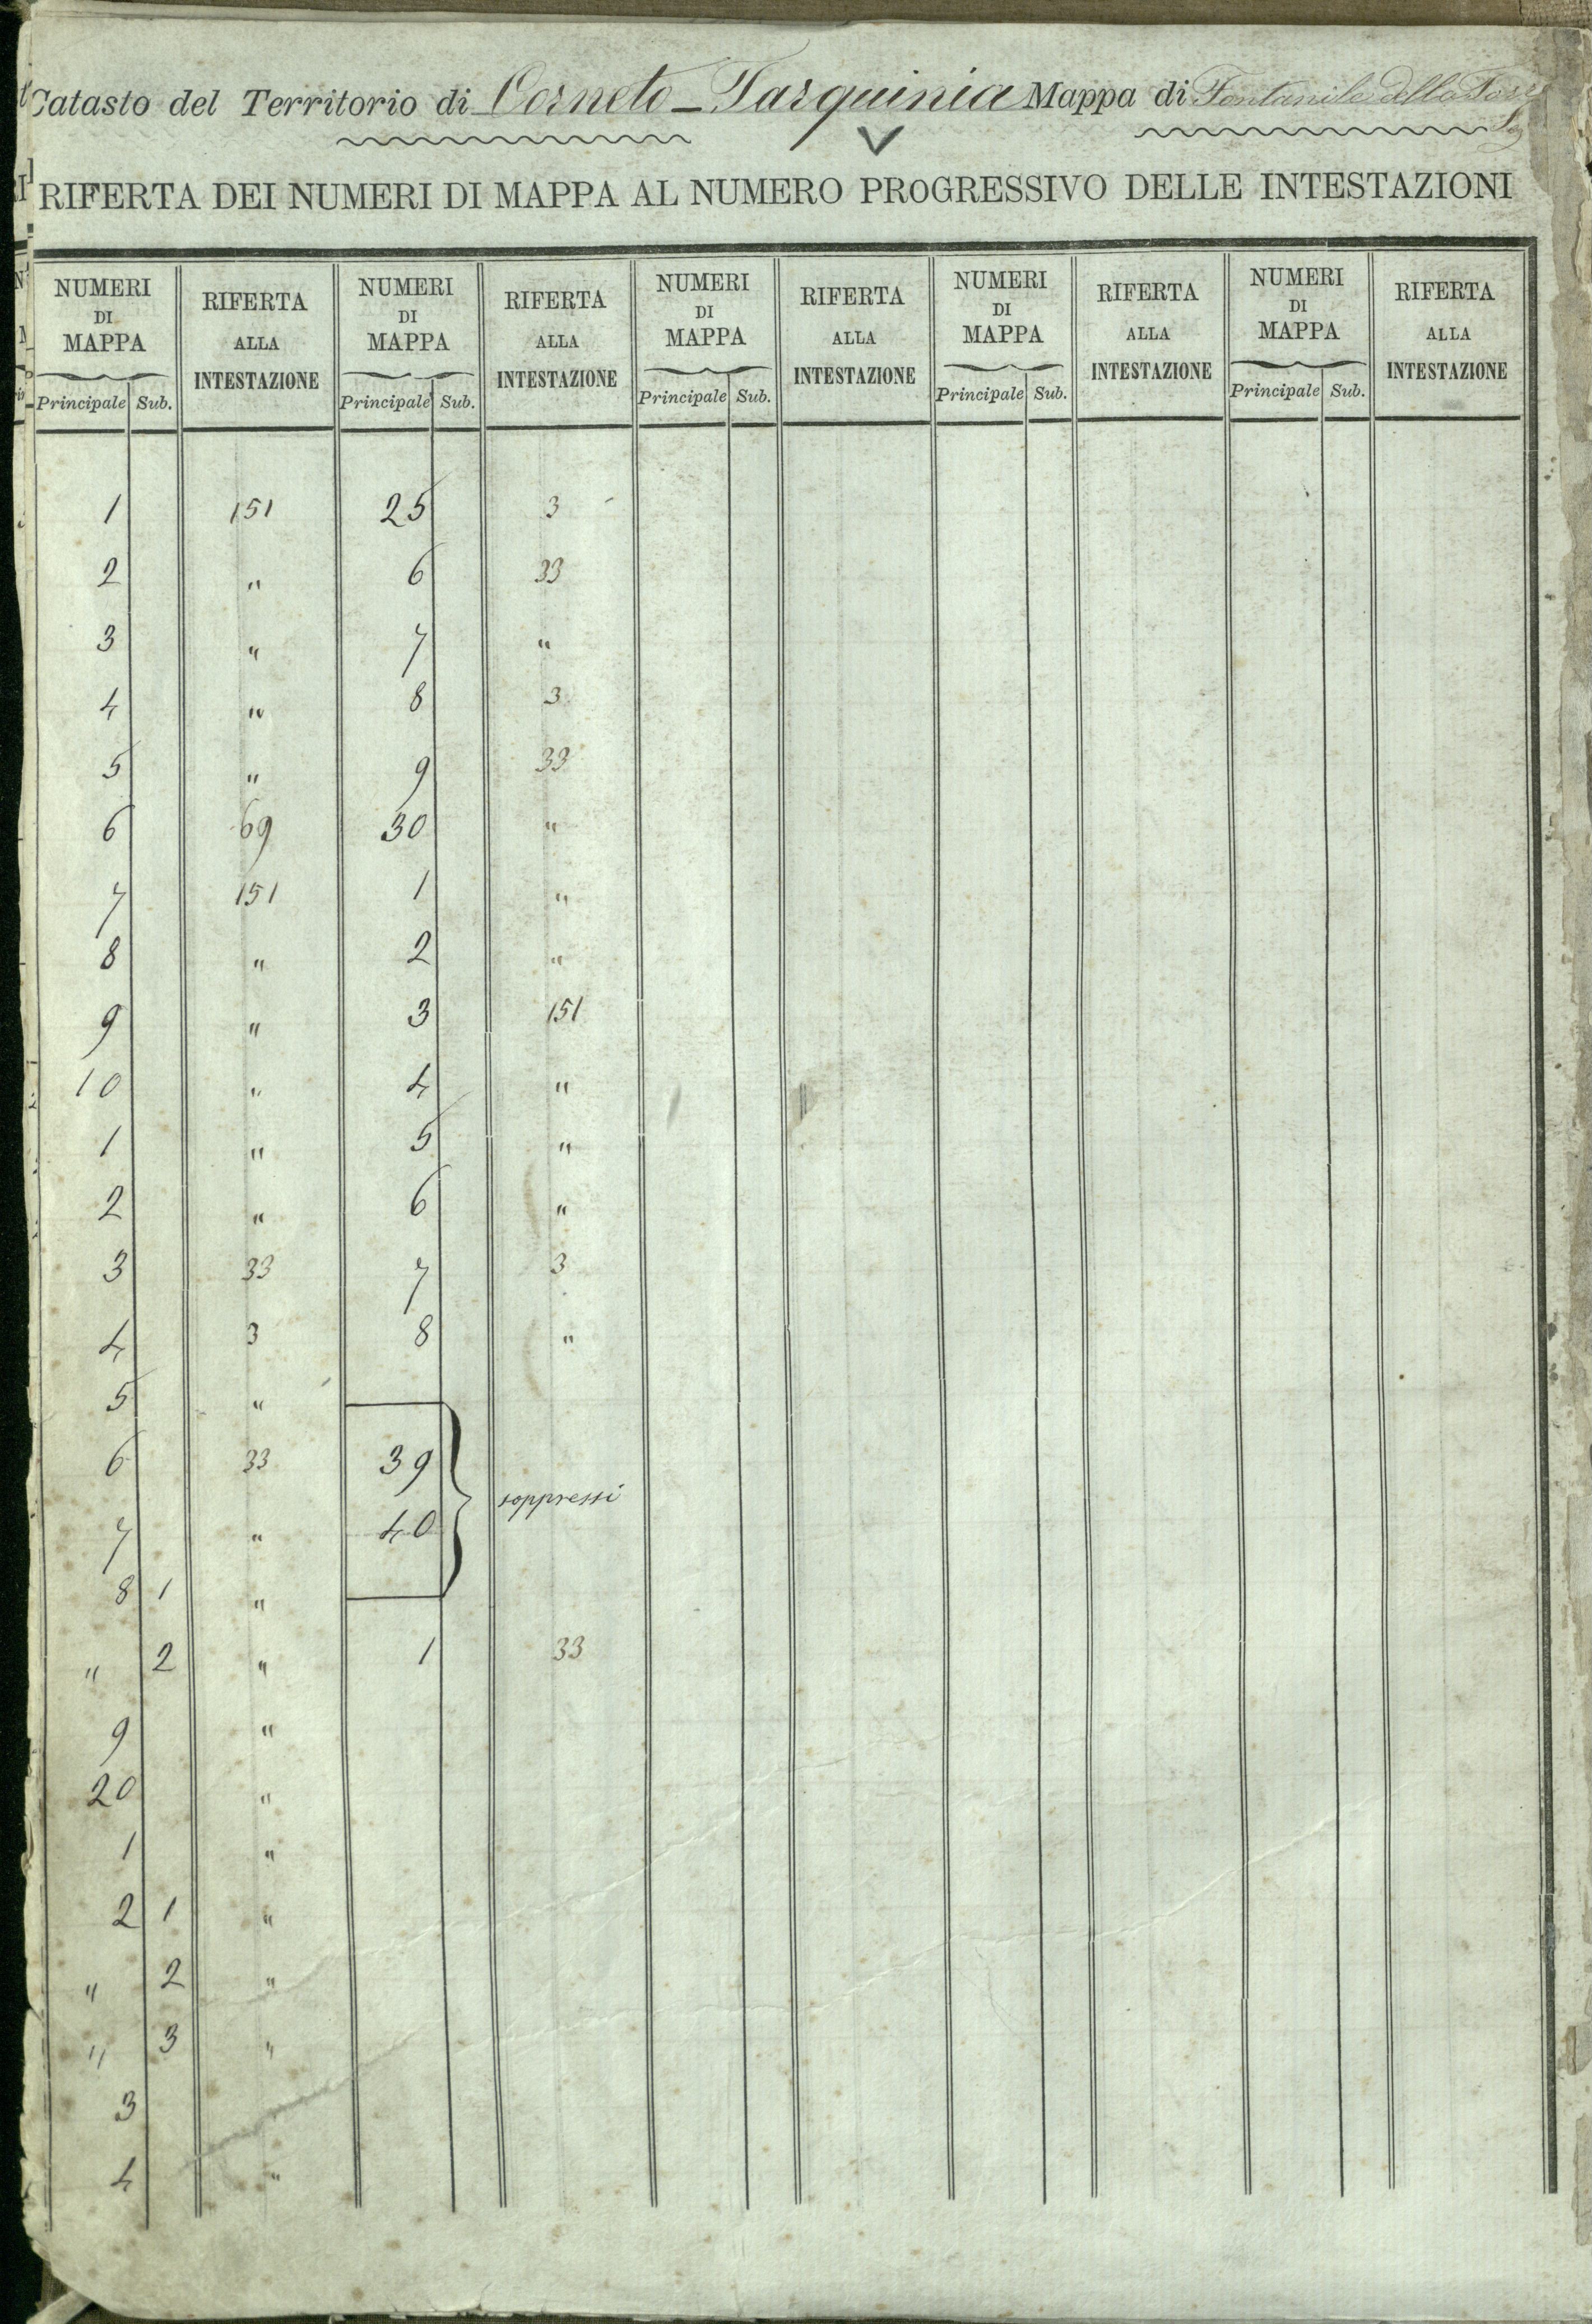 Catasto del Territorio di Corneto - Tarquinia Mappa di Fontanile della
RIFERTA DEI NUMERI DI MAPPA AL NUMERO PROGRESSIVO DELLE INTESTAZIONI
NUMERI DI MAPPA RIFERTA ALLA INTESTAZIONE NUMERI DI MAPPA RIFERTA ALLA INTESTAZIONE NUMERI DI MAPPA RIFERTA ALLA INTESTAZIONE NUMERI DI MAPPA RIFERTA ALLA INTESTAZIONE NUMERI DI MAPPA RIFERTA ALLA INTESTAZIONE
Principale Sub. Principale Sub. Principale Sub. Principale Sub. Principale Sub.
1 151 25 3
2 " 6 33
3 " 7 "
4 " 8 3
5 " 9 33
6 69 30 "
7 151 1 "
8 " 2 "
9 " 3 151
10 " 4 "
1 " 5 "
2 " 6 "
3 33 7 3
4 3 8 "
5 "
6 33 39
soppressi
7 " 40
8 1 "
" 2 " 1 33
9 "
20 "
1 "
2 1 "
" 2 "
" 3 "
3
4 "